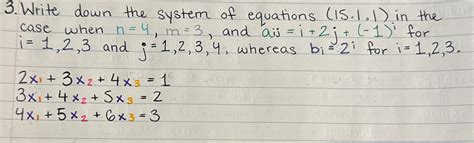 3. Write down the system of equations (15.1.1) in the
case when n=4, m=3, and aij = i+2j+(-1)ⁱ for
i=1,2,3 and j=1,2,3,4, whereas bi=2ⁱ for i=1,2,3.
2x₁ + 3x₂ + 4x₃ = 1
3x₁ + 4x₂ + 5x₃ = 2
4x₁ + 5x₂ + 6x₃ = 3